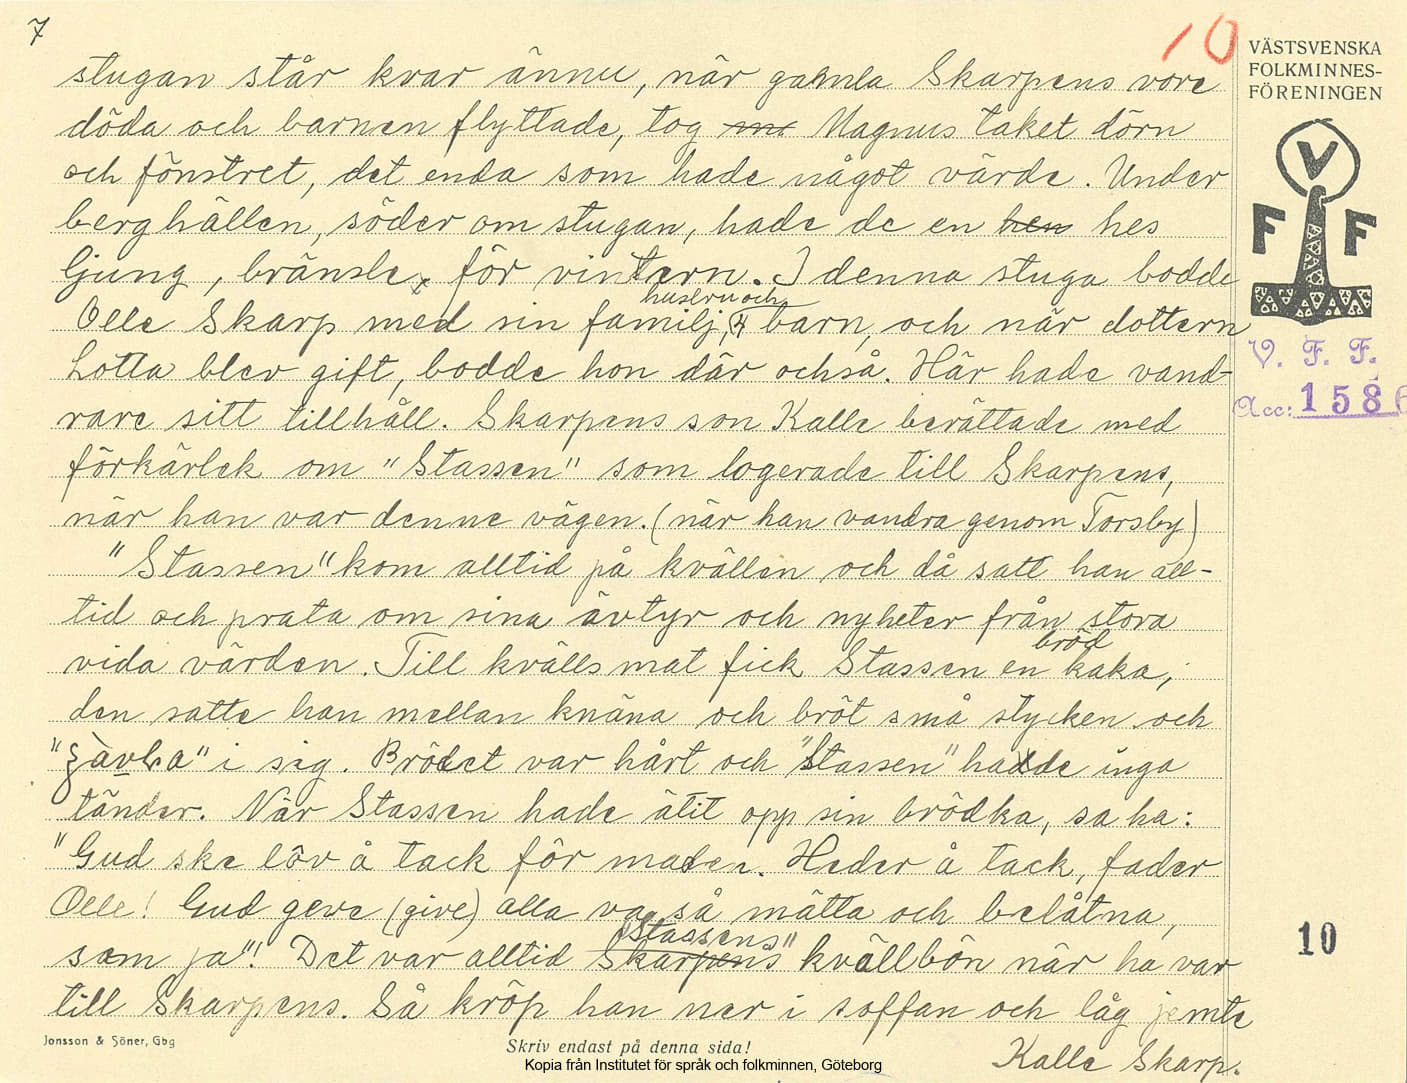 7
10
VÄSTSVENSKA
FOLKMINNES-
FÖRENINGEN
stugan står kvar ännu, när gamla Skarpens vore
döda och barnen flyttade, tog Magnus taket dörn
och fönstret, det enda som hade något värde. Under
berghällen, söder om stugan, hade de en hen hes
ljung, bränsle, för vintern. I denna stuga bodde
husfru och
Olle Skarp med sin familj, 4 barn, och när dottern
Lotta blev gift, bodde hon där också. Här hade vand-
rare sitt tillhåll. Skarpens son Kalle berättade med
förkärlek om "Stassen" som logerade till Skarpens,
när han var denne vägen. (när han vandra genom Torsby)
"Stassen" kom alltid på kvällen och då satt han all-
tid och prata om sina ävtyr och nyheter från stora
bröd
vida värden. Till kvällsmat fick Stassen en kaka,
den satte han mellan knäna och bröt små stycken och
i sig. Brödet var hårt och "Stassen" hadde inga
tänder. När Stassen hade ätit opp sin brödka, sa ha:
"Gud ske löv å tack för maten. Heder å tack, fader
Olle! Gud geve (give) alla va så mätta och belåtna,
"Stassens"
som ja"! Det var alltid Skarpens kvällbön när ha var
till Skarpens. Så kröp han ner i soffan och låg jemte
Kalle Skarp.
V
F F
V. F. F.
Acc: 1586
10
Jonsson & Söner, Gbg
Skriv endast på denna sida!
Kopia från Institutet för språk och folkminnen, Göteborg